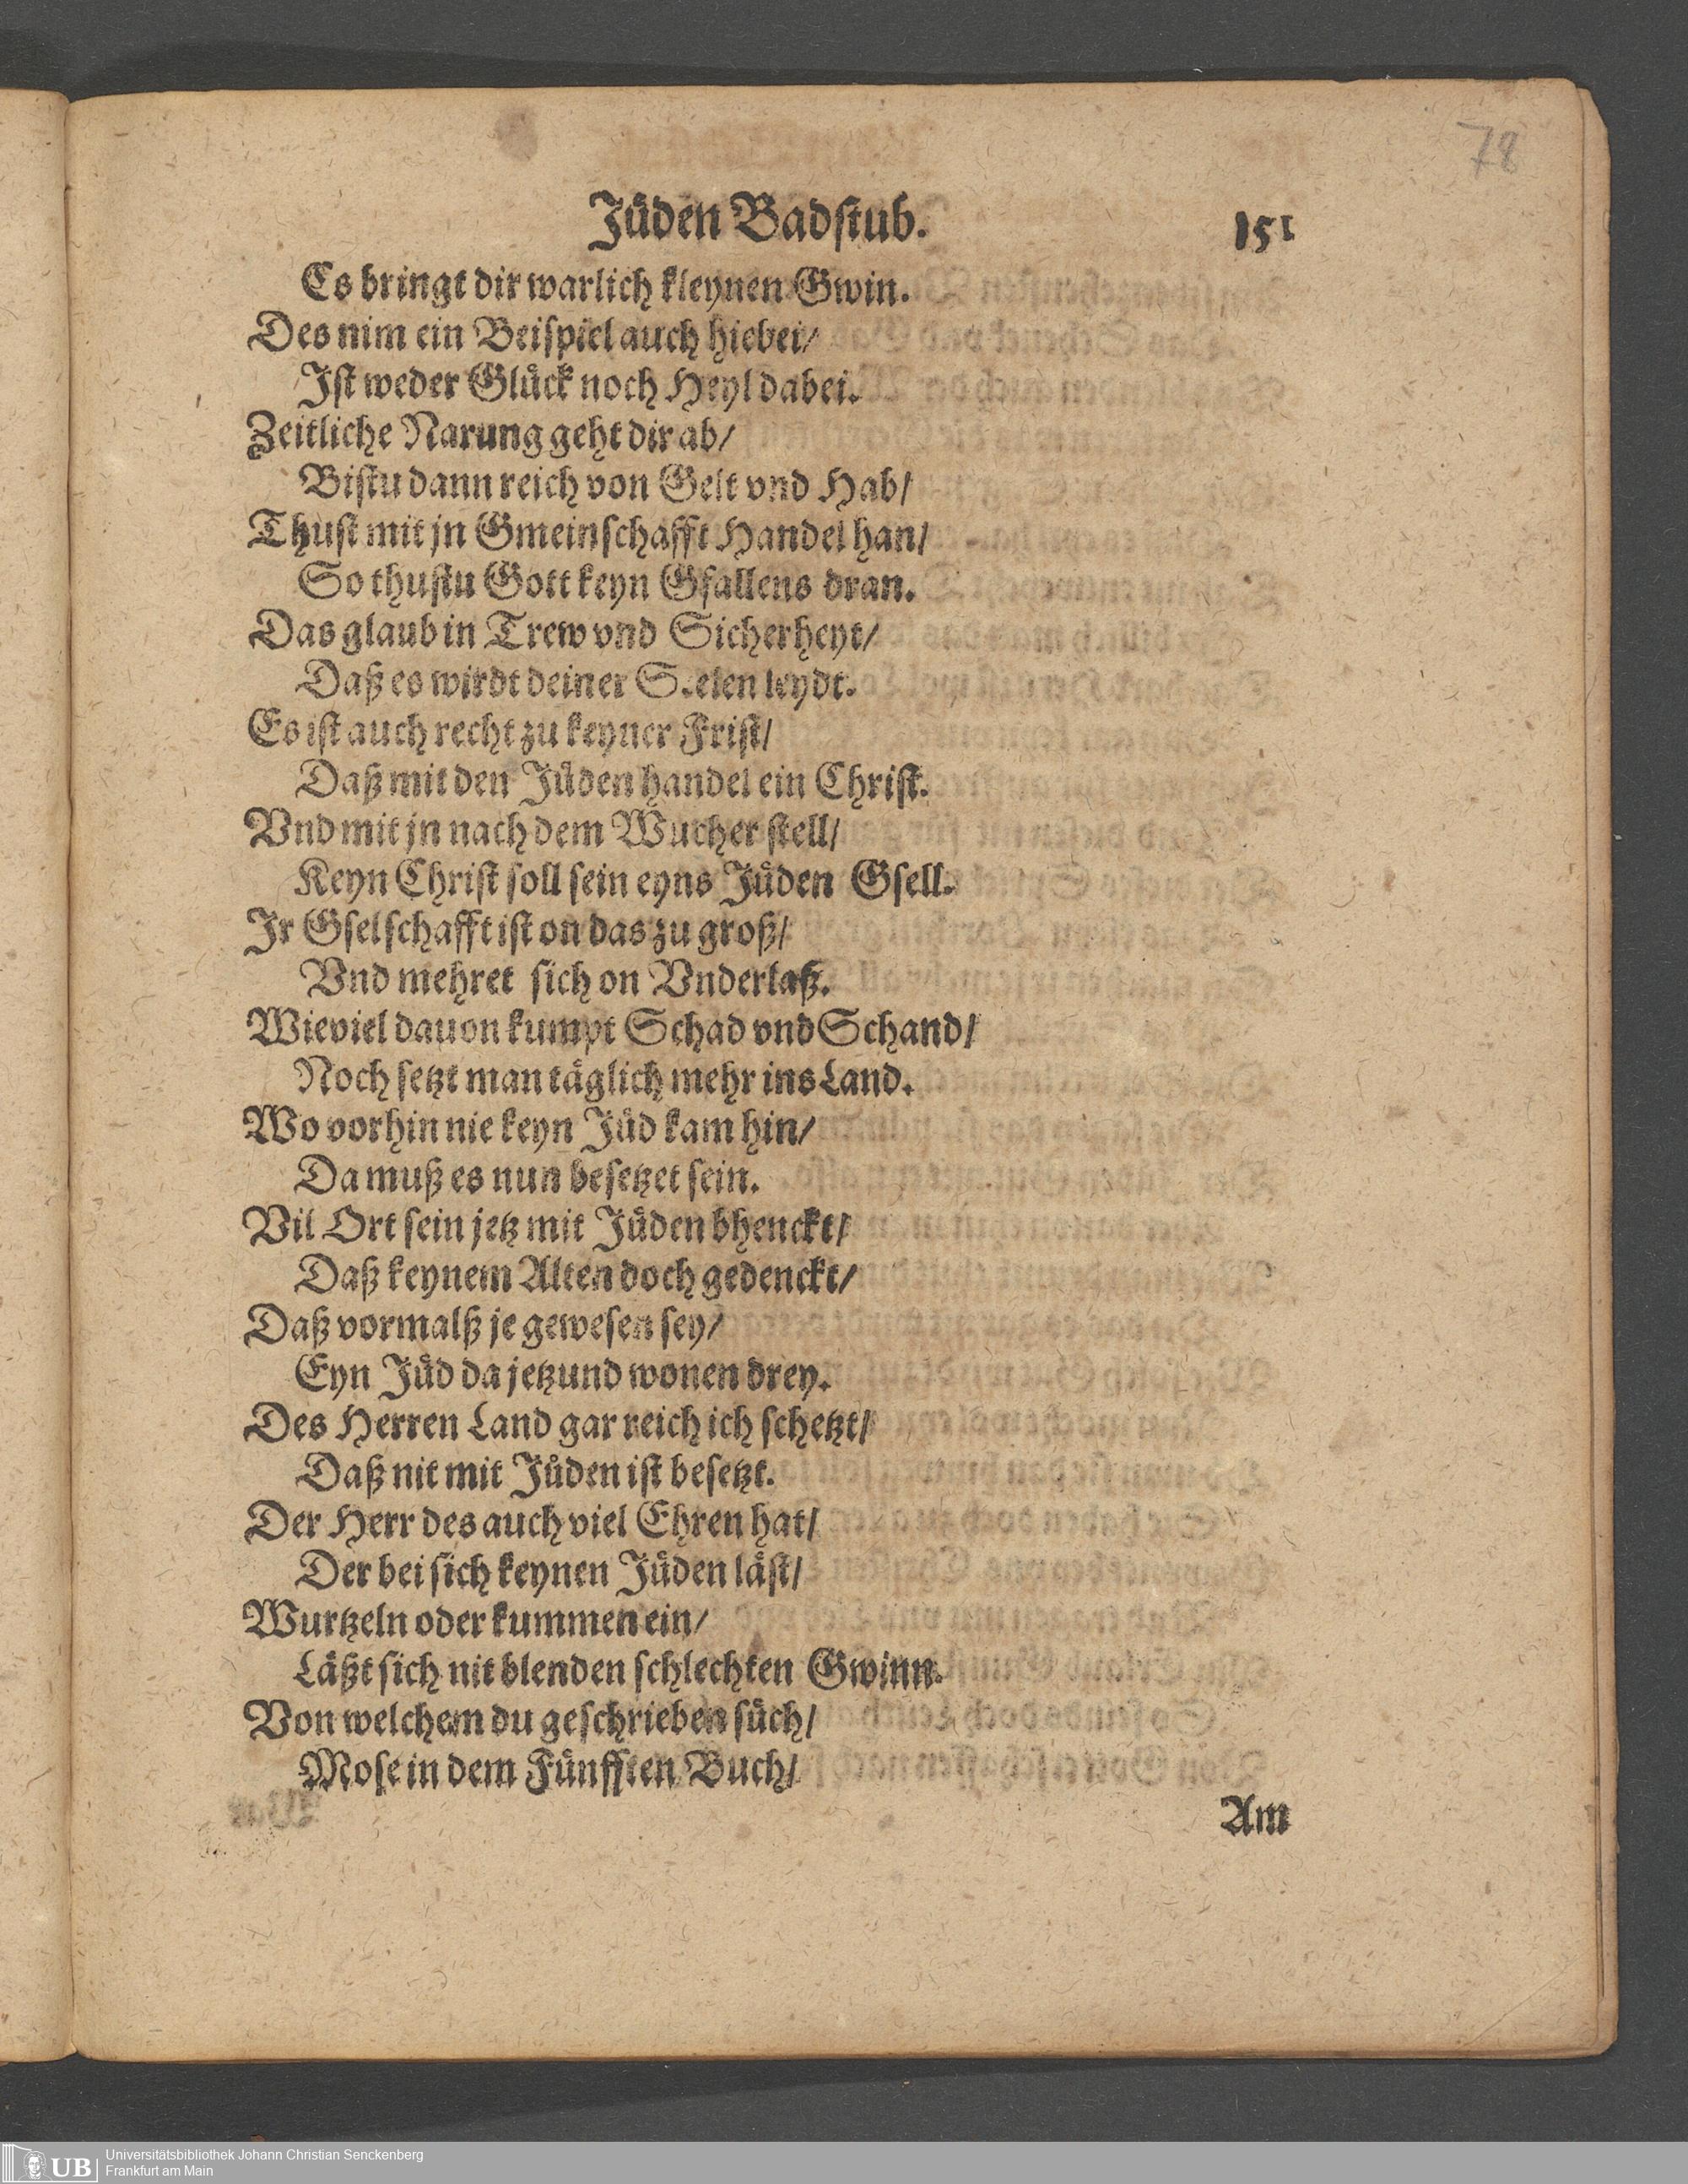 78
Jüden Badstub. 151
Es bringt dir warlich kleynen Gwin.
Des nim ein Beispiel auch hiebei/
Ist weder Glück noch Heyl dabei.
Zeitliche Narung geht dir ab/
Bistu dann reich von Gelt vnd Hab/
Thust mit jn Gmeinschafft Handel han/
So thustu Gott keyn Gfallens dran.
Das glaub in Trew vnd Sicherheyt/
Daß es wirdt deiner Seelen leydt.
Es ist auch recht zu keyner Frist/
Daß mit den Jüden handel ein Christ.
Vnd mit jn nach dem Wucher stell/
Keyn Christ soll sein eyns Jüden Gsell.
Jr Gselschafft ist on das zu groß/
Vnd mehret sich on Vnderlaß.
Wieviel dauon kumpt Schad vnd Schand/
Noch setzt man täglich mehr ins Land.
Wo vorhin nie keyn Jüd kam hin/
Da muß es nun besetzet sein.
Vil Ort sein jetz mit Jüden bhenckt/
Daß keynem Alten doch gedenckt/
Daß vormalß je gewesen sey/
Eyn Jüd da jetzund wonen drey.
Des Herren Land gar reich ich schetzt/
Daß nit mit Jüden ist besetzt.
Der Herr des auch viel Ehren hat/
Der bei sich keynen Jüden läst/
Wurtzeln oder kummen ein/
Läßt sich nit blenden schlechten Gwinn.
Von welchem du geschrieben süch/
Mose in dem Fünfften Buch/
Am
UB Universitätsbibliothek Johann Christian Senckenberg
Frankfurt am Main